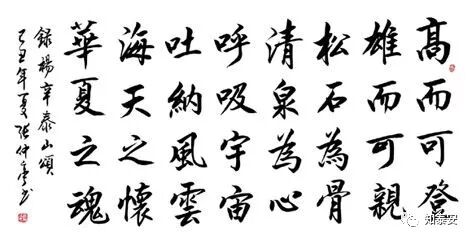 高而可登
雄而可親
松石為骨
清泉為心
呼吸宇宙
吐納風雲
海天之懷
華夏之魂
錄楊辛泰山頌
己丑年夏張仲亭書
知泰安